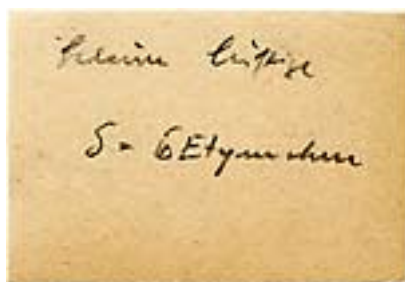 kleine lustige
5-6 Etymchen